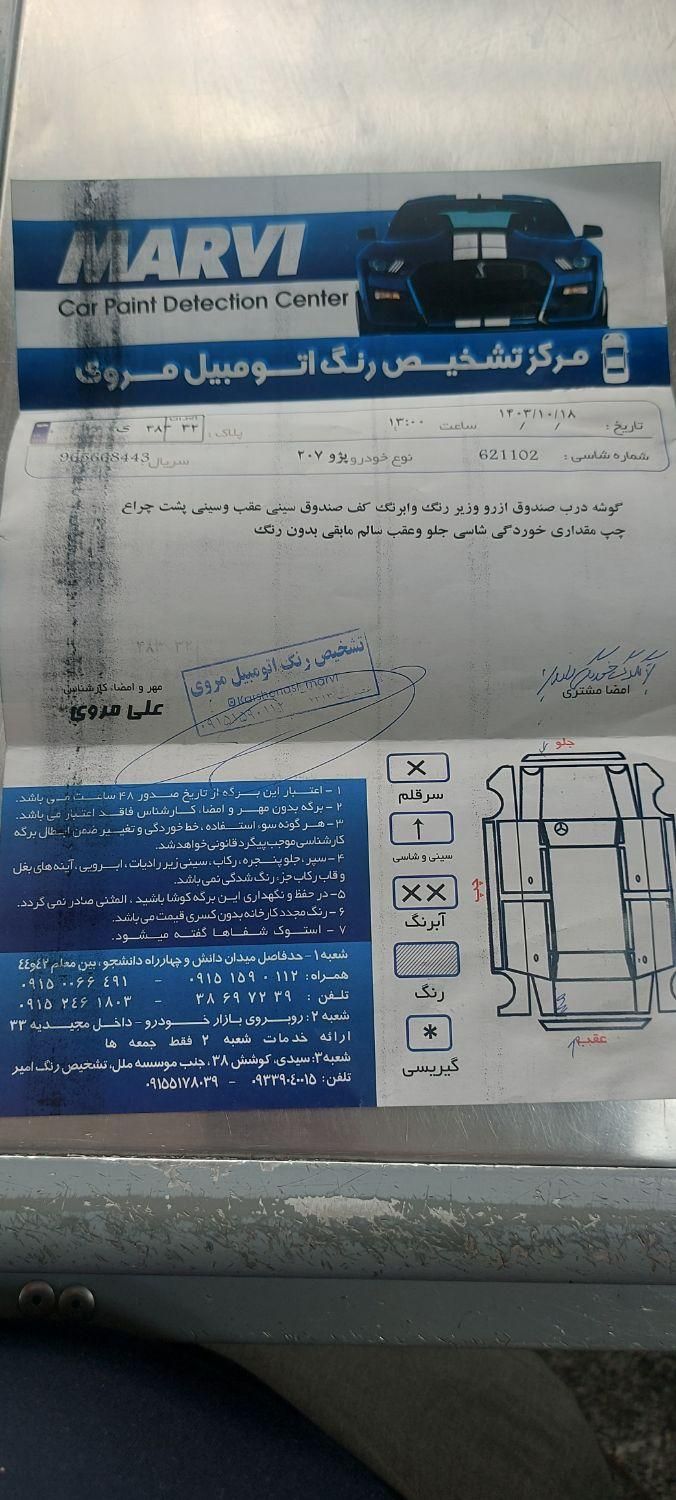 MARVI
Car Paint Detection Center
مرکز تشخیص رنگ اتومبیل مروی
تاریخ : ۱۴۰۳/۱۰/۱۸ ساعت ۱۳:۰۰ پلاک :
شماره شاسی : 621102 نوع خودرو پژو ۲۰۷ سریال 965668443
گوشه درب صندوق ازرو وزیر رنگ وابرنگ کف صندوق سینی عقب وسینی پشت چراغ
چپ مقداری خوردگی شاسی جلو وعقب سالم مابقی بدون رنگ
امضا مشتری
تشخیص رنگ اتومبیل مروی
@Karshenasi_marvi
۰۹۱۵۱۵۹۰۱۱۲
مهر و امضا، کارشناس
علی مروی
۱ - اعتبار این برگه از تاریخ صدور ۴۸ ساعت می باشد.
۲ - برگه بدون مهر و امضا، کارشناس فاقد اعتبار می باشد.
۳ - هر گونه سو، استفاده ، خط خوردگی و تغییر ضمن ابطال برگه
کارشناسی موجب پیگرد قانونی خواهد شد.
۴ - سپر ، جلو پنجره ، رکاب ، سینی زیر رادیات ، ابرویی ، آینه های بغل
و قاب رکاب جزء رنگ شدگی نمی باشد.
۵- در حفظ و نگهداری این برگه کوشا باشید ، المثنی صادر نمی گردد.
۶ - رنگ مجدد کارخانه بدون کسری قیمت می باشد.
۷ - استوک شفاها گفته میشود.
شعبه ۱ - حدفاصل میدان دانش و چهارراه دانشجو ، بین معلم ۴۲و۴۴
همراه : ۱۱۲ ۰ ۱۵۹ ۰۹۱۵ - ۴۹۱ ۰۰۶۶ ۰۹۱۵
تلفن : ۳۹ ۷۲ ۶۹ ۳۸ - ۱۸۰۳ ۲۴۶ ۰۹۱۵
شعبه ۲ : روبروی بازار خودرو - داخل مجیدیه ۳۳
ارائه خدمات شعبه ۲ فقط جمعه ها
شعبه ۳: سیدی، کوشش ۳۸ ، جنب موسسه ملل، تشخیص رنگ امیر
تلفن : ۰۹۳۳۹۰۴۰۰۱۵ - ۰۹۱۵۵۱۷۸۰۳۹
سرقلم
سینی و شاسی
آبرنگ
رنگ
گیریسی
جلو
عقب